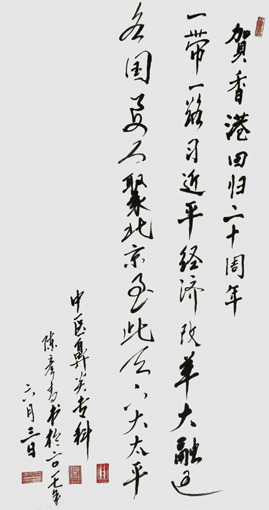 賀香港回归二十周年
一带一路习近平经济改革大融通
各国要人聚北京至此天下大太平
中医鼻炎专科
陈彦书于二〇一七年
六月三日